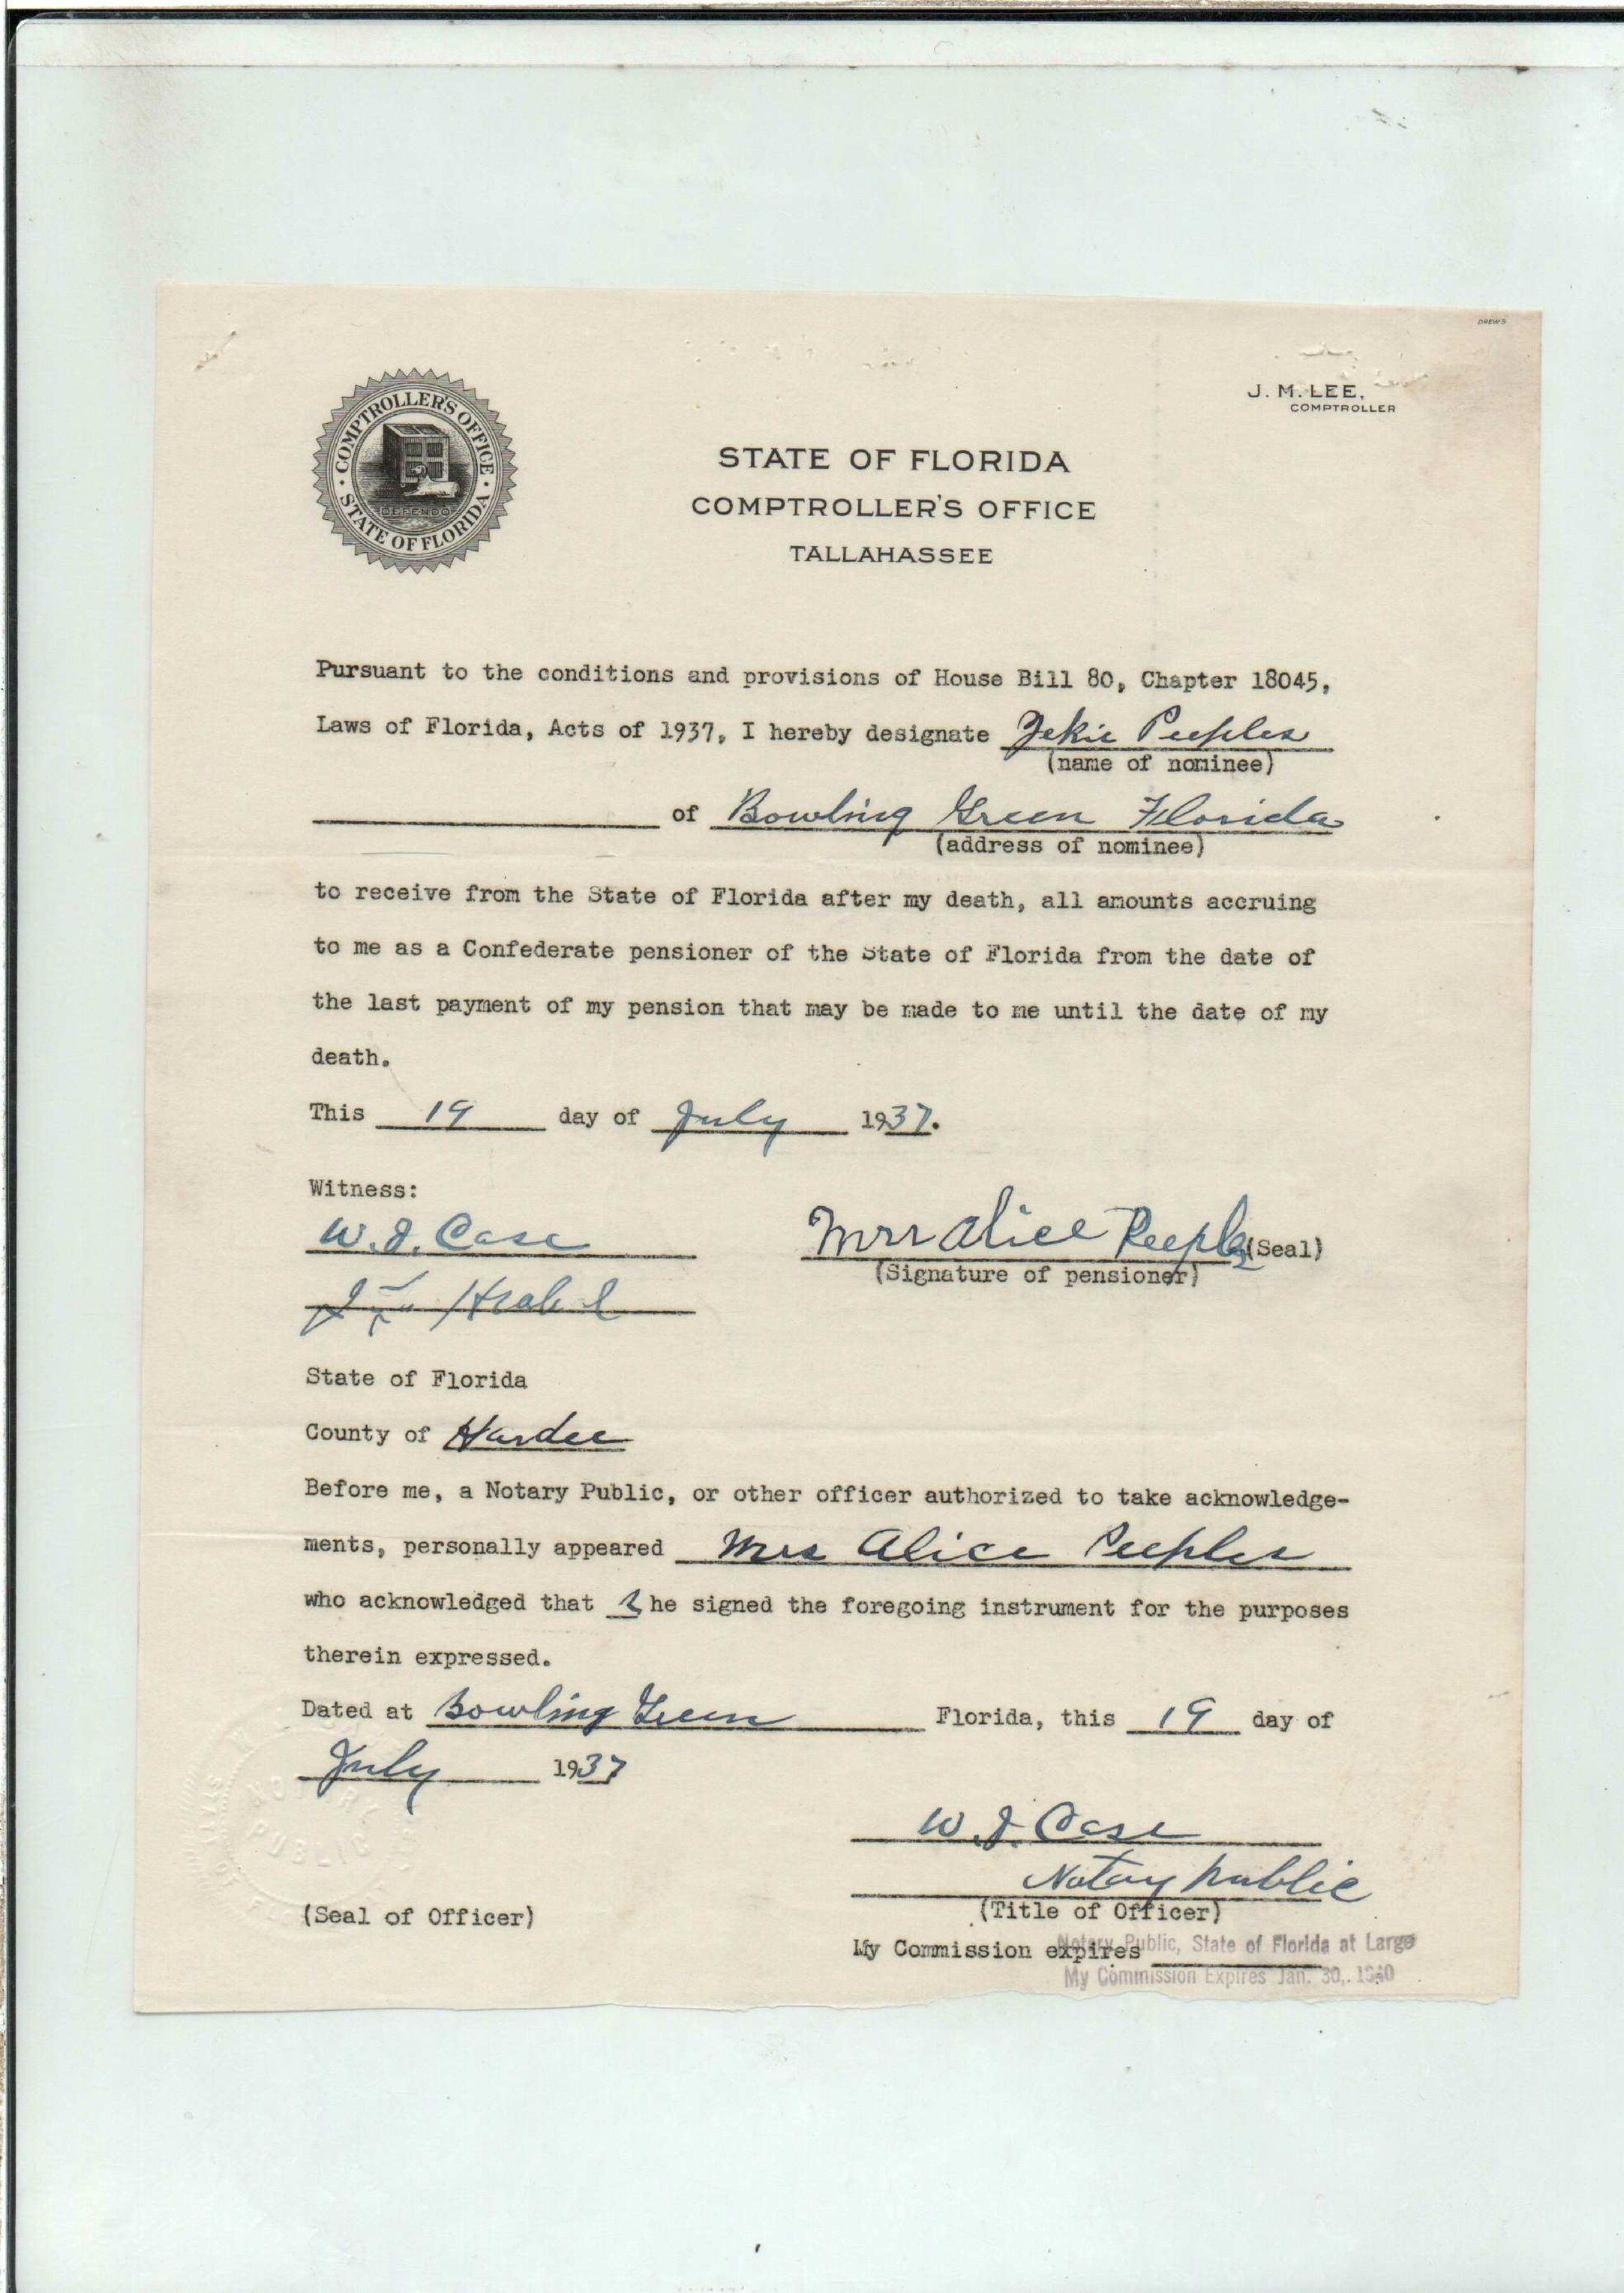 DREWS
J. M. LEE,
COMPTROLLER
COMPTROLLER'S OFFICE
STATE OF FLORIDA
DEFENDO
STATE OF FLORIDA
COMPTROLLER'S OFFICE
TALLAHASSEE
Pursuant to the conditions and provisions of House Bill 80, Chapter 18045,
Laws of Florida, Acts of 1937, I hereby designate Zekie Peeples
(name of nominee)
of Bowling Green Florida
(address of nominee)
to receive from the State of Florida after my death, all amounts accruing
to me as a Confederate pensioner of the State of Florida from the date of
the last payment of my pension that may be made to me until the date of my
death.
This 19 day of July 1937.
Witness:
W. J. Case
Mrs Alice Peeples (Seal)
(Signature of pensioner)
State of Florida
County of Hardee
Before me, a Notary Public, or other officer authorized to take acknowledge-
ments, personally appeared Mrs Alice Peeples
who acknowledged that She signed the foregoing instrument for the purposes
therein expressed.
Dated at Bowling Green Florida, this 19 day of
July 1937
NOTARY
PUBLIC
W. J. Case
Notary Public
(Seal of Officer)
(Title of Officer)
My Commission expires
Notary Public, State of Florida at Large
My Commission Expires Jan. 30, 1940